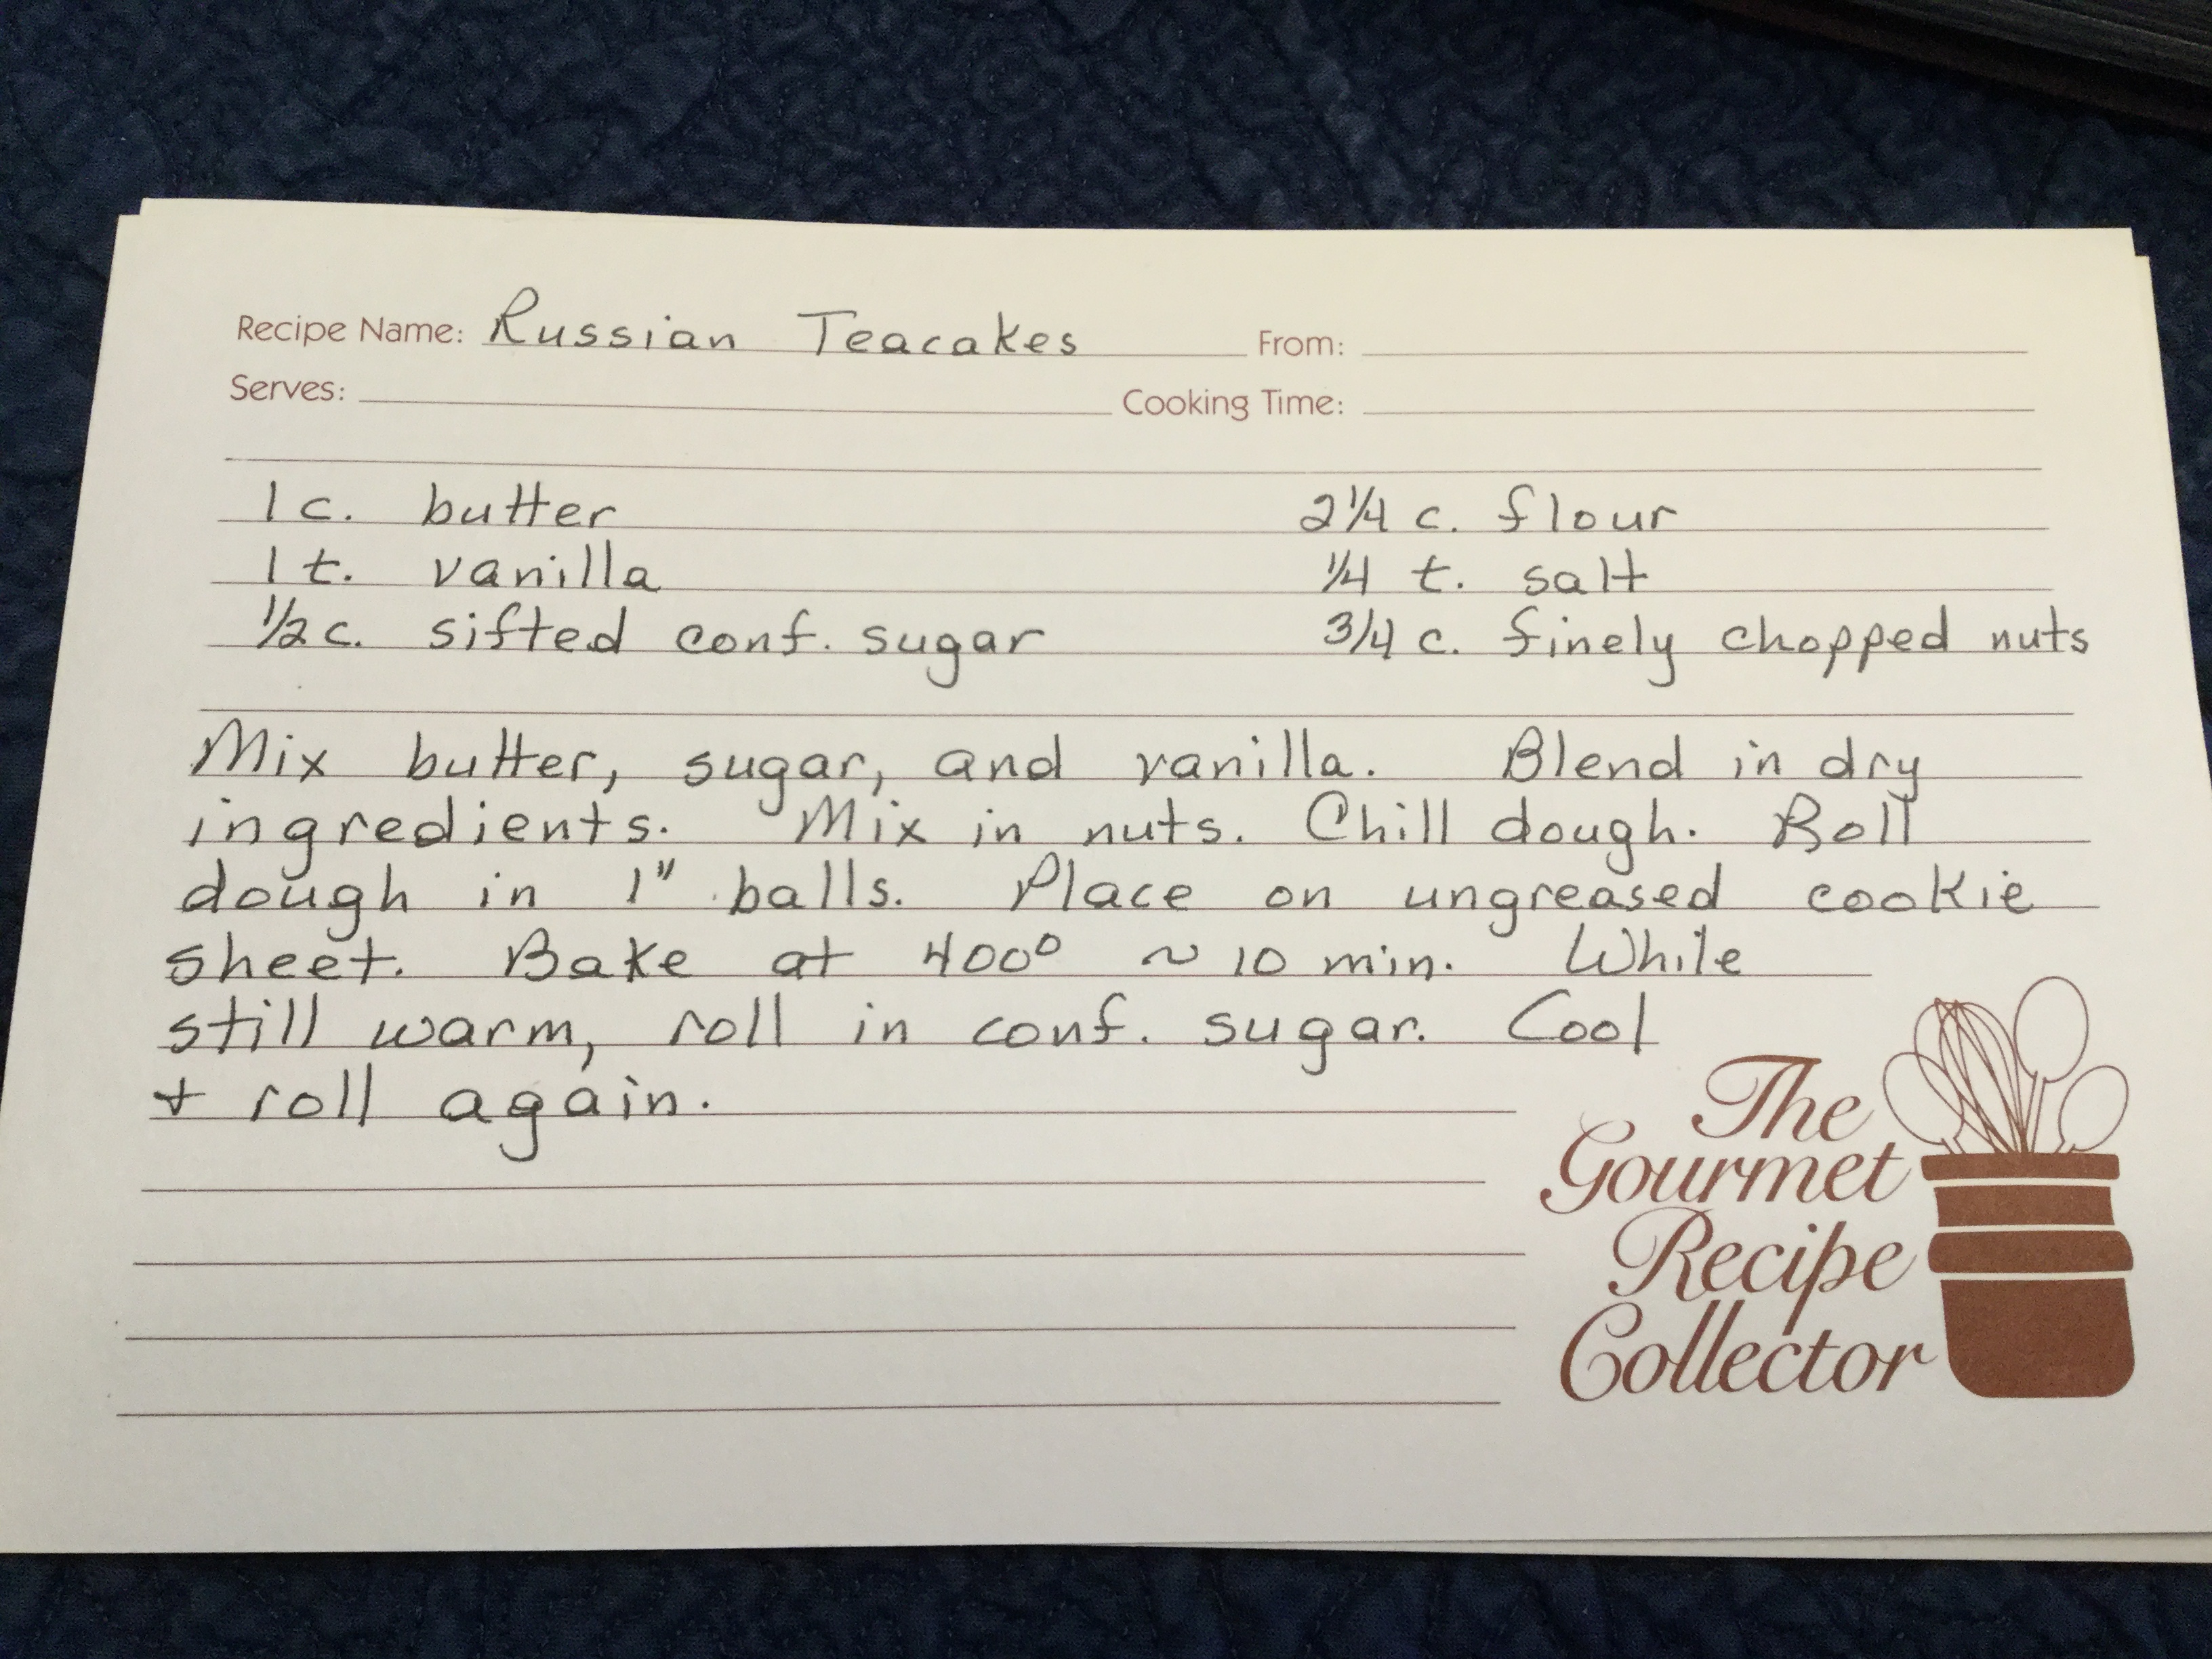 Recipe Name: Russian Teacakes From:
Serves: Cooking Time:
1 c. butter 2 1/4 c. flour
1 t. vanilla 1/4 t. salt
1/2 c. sifted conf. sugar 3/4 c. finely chopped nuts
Mix butter, sugar, and vanilla. Blend in dry
ingredients. Mix in nuts. Chill dough. Roll
dough in 1" balls. Place on ungreased cookie
sheet. Bake at 400° ~ 10 min. While
still warm, roll in conf. sugar. Cool
+ roll again.
The
Gourmet
Recipe
Collector